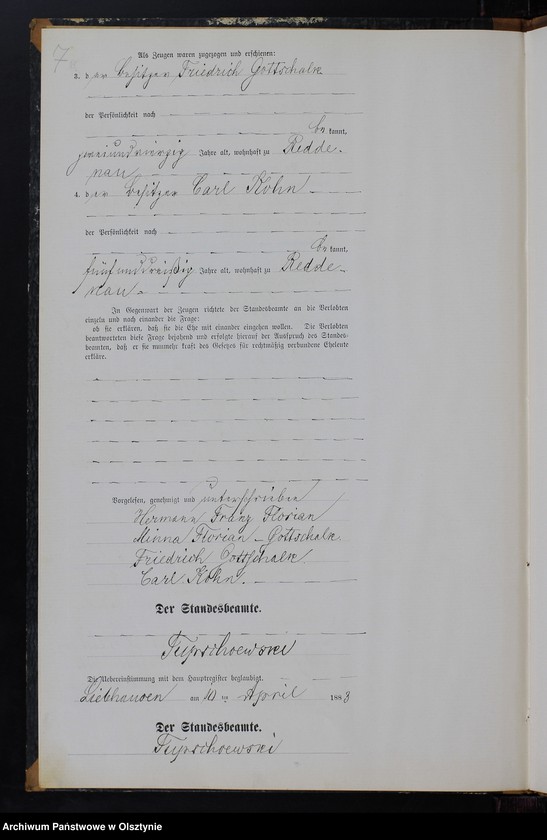 7
Als Zeugen waren zugezogen und erschienen:
3. der Besitzer Friedrich Gottschalk
der Persönlichkeit nach
be kannt,
zweiundvierzig Jahre alt, wohnhaft zu Redde-
nau
4. der Besitzer Carl Kohn
der Persönlichkeit nach
be kannt,
fünfunddreißig Jahre alt, wohnhaft zu Redde-
nau
In Gegenwart der Zeugen richtete der Standesbeamte an die Verlobten
einzeln und nach einander die Frage:
ob sie erklären, daß sie die Ehe mit einander eingehen wollen. Die Verlobten
beantworteten diese Frage bejahend und erfolgte hierauf der Ausspruch des Standes-
beamten, daß er sie nunmehr kraft des Gesetzes für rechtmäßig verbundene Eheleute
erkläre.
Vorgelesen, genehmigt und unterschrieben
Hermann Franz Florian
Minna Florian - Gottschalk.
Friedrich Gottschalk
Carl Kohn.
Der Standesbeamte.
Die Uebereinstimmung mit dem Hauptregister beglaubigt.
am 10 ten April 1883
Der Standesbeamte.
Archiwum Państwowe w Olsztynie